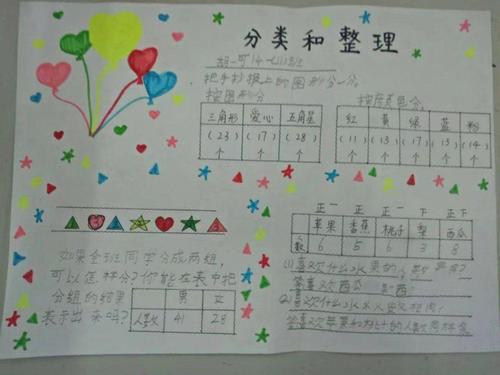 分类和整理
把手抄报上的图形分一分。
按图形分
三角形 爱心 五角星
(23)个 (17)个 (28)个
按颜色分
红 黄 绿 蓝 粉
(11)个 (13)个 (17)个 (13)个 (14)个
如果全班同学分成两组,
可以怎样分?你能在表中把
分组的结果
表示出来吗?
男 女
人数 41 28
正一 正 正一 下 正下
苹果 香蕉 桃子 梨 西瓜
人数 6 5 6 3 8
(1)喜欢什么水果的人数
答喜欢西瓜
(2)喜欢什么水果人数相同?
答喜欢苹果和桃子的人数同样多